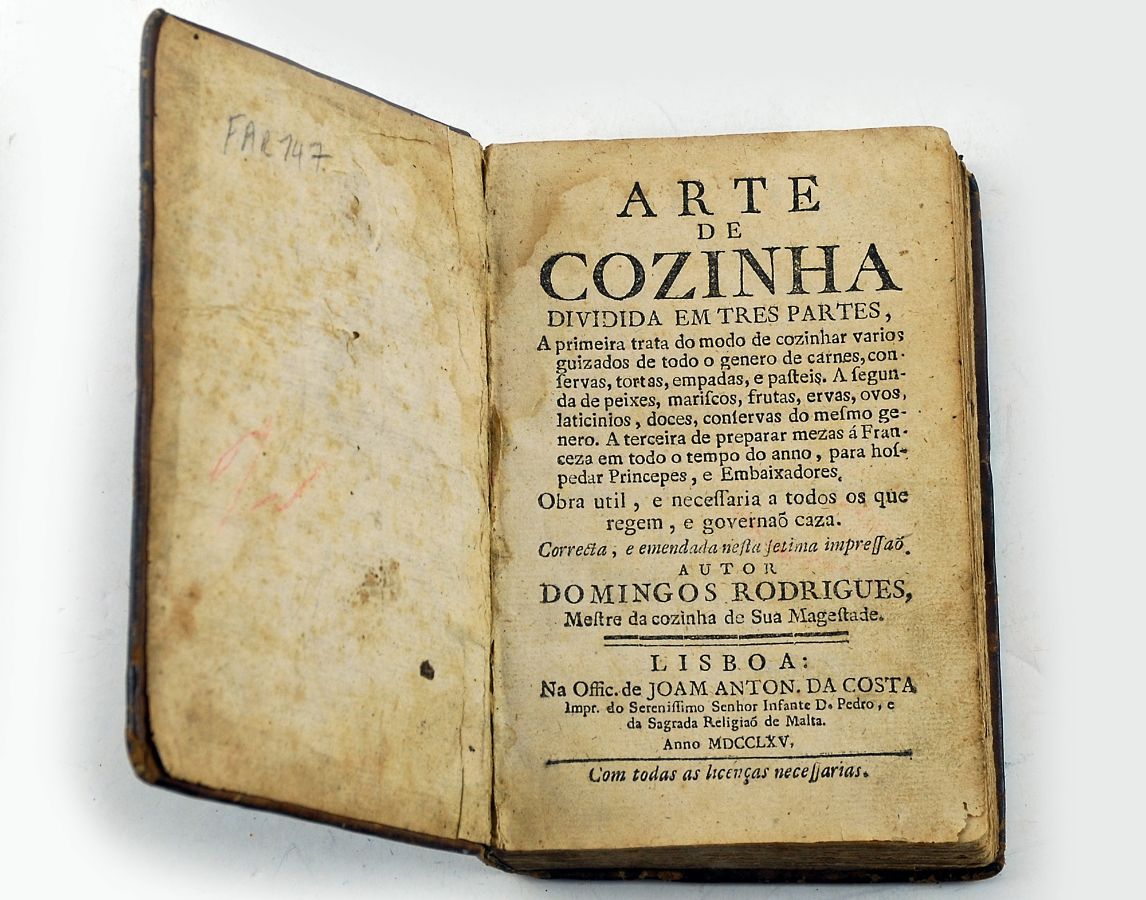 FAR 147
ARTE
DE
COZINHA
DIVIDIDA EM TRES PARTES,
A primeira trata do modo de cozinhar varios
guizados de todo o genero de carnes, con-
ſervas, tortas, empadas, e paſteis. A ſegun-
da de peixes, mariſcos, frutas, ervas, ovos,
laticinios, doces, conſervas do meſmo ge-
nero. A terceira de preparar mezas á Fran-
ceza em todo o tempo do anno, para hoſ-
pedar Princepes, e Embaixadores.
Obra util, e neceſſaria a todos os que
regem, e governaõ caza.
Correcta, e emendada neſta ſetima impreſſaõ.
AUTOR
DOMINGOS RODRIGUES,
Meſtre da cozinha de Sua Mageſtade.
LISBOA:
Na Offic. de JOAM ANTON. DA COSTA
Impr. do Sereniſſimo Senhor Infante D. Pedro, e
da Sagrada Religiaõ de Malta.
Anno MDCCLXV,
Com todas as licenças neceſſarias.